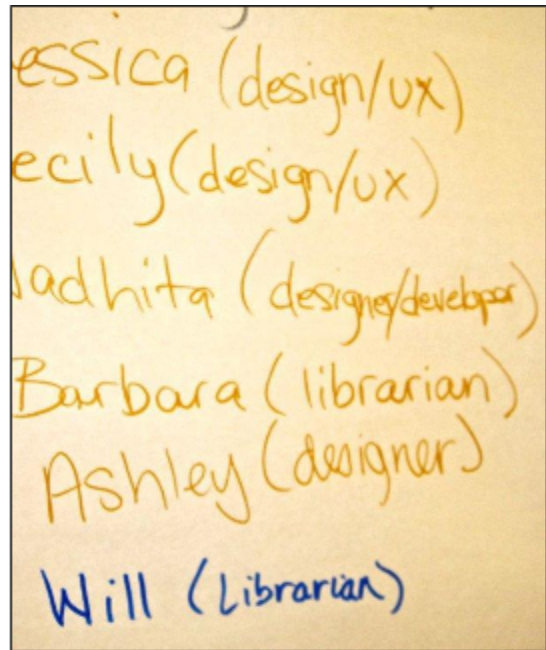 essica (design/ux)
ecily (design/ux)
adhita (designer/developer)
Barbara (librarian)
Ashley (designer)
Will (Librarian)